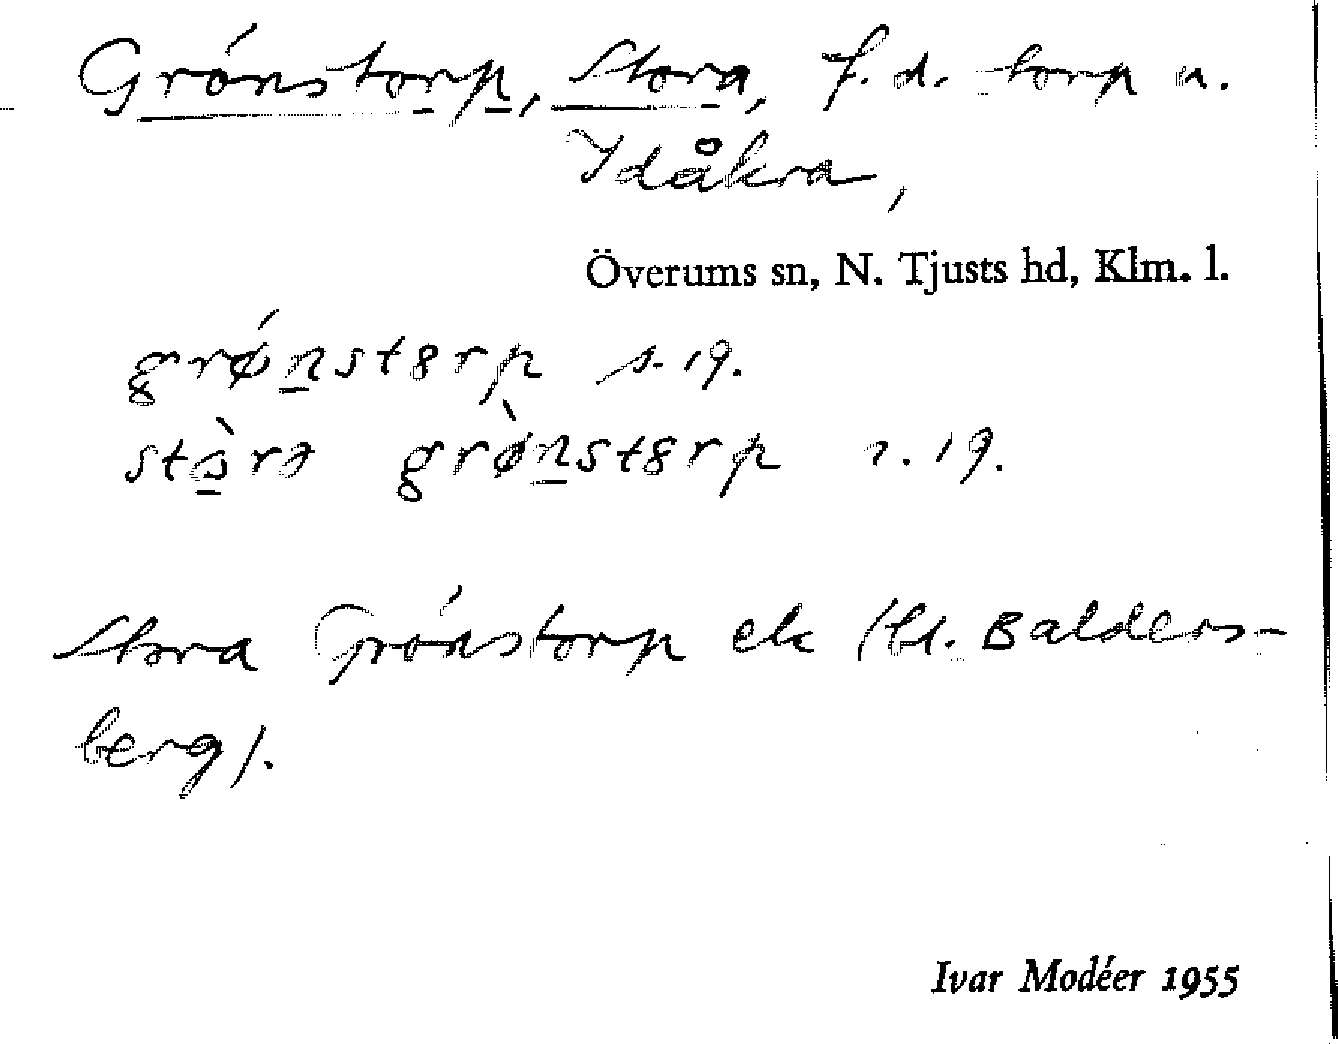 Grönstorp, Stora, f.d. torp u.
Idåkra,
Överums sn, N. Tjusts hd, Klm. l.
grǿnst8rp s. 19.
stòrə grø̀nst8rp s. 19.
Stora Grönstorp ek (bl. Balders-
berg).
Ivar Modéer 1955